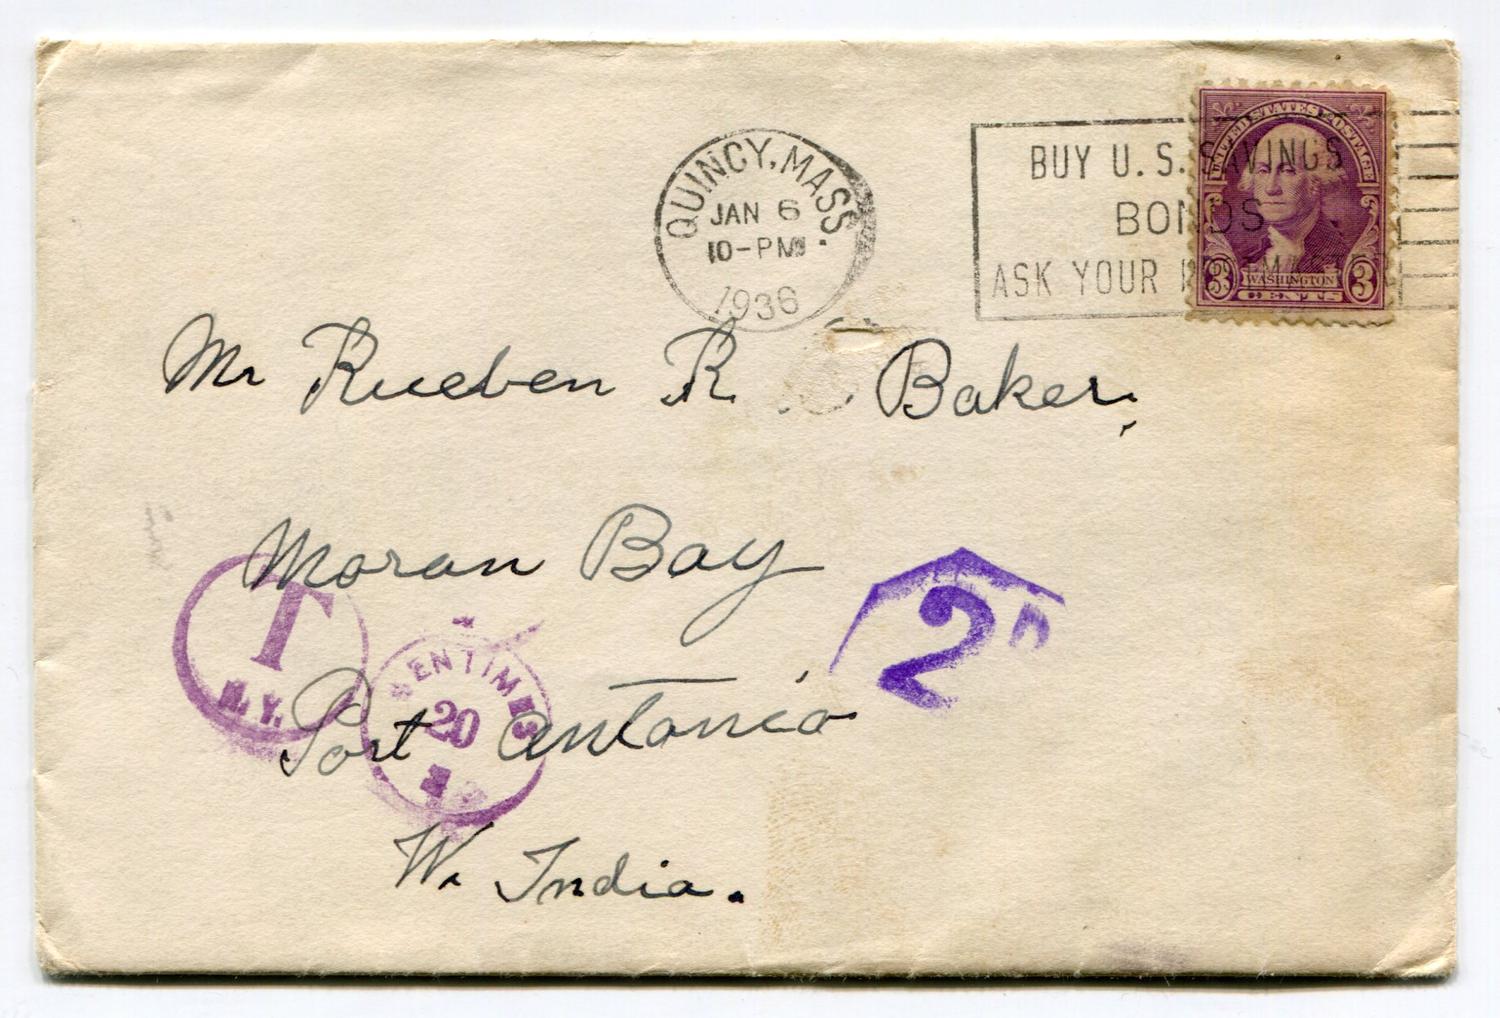 QUINCY, MASS.
JAN 6
10-PM
1936
BUY U.S. SAVINGS
BONDS
ASK YOUR POSTMASTER
UNITED STATES POSTAGE
3 WASHINGTON 3
CENTS
Mr Rueben R Baker,
Moran Bay
T
N.Y.
CENTIMES
20
2D
Port Antonio
W. India.